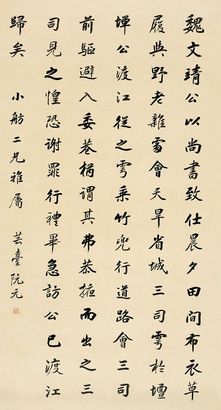 魏文靖公以尚書致仕晨夕田間布衣草
履與野老雜處會天旱省城三司雩於壇
墠公渡江從之雩乘竹兜行道路會三司
前驅避入委巷柄謂其弗恭掖而出之三
司見之惶恐謝罪行禮畢急訪公已渡江
歸矣 小舫二兄雅屬 芸臺阮元